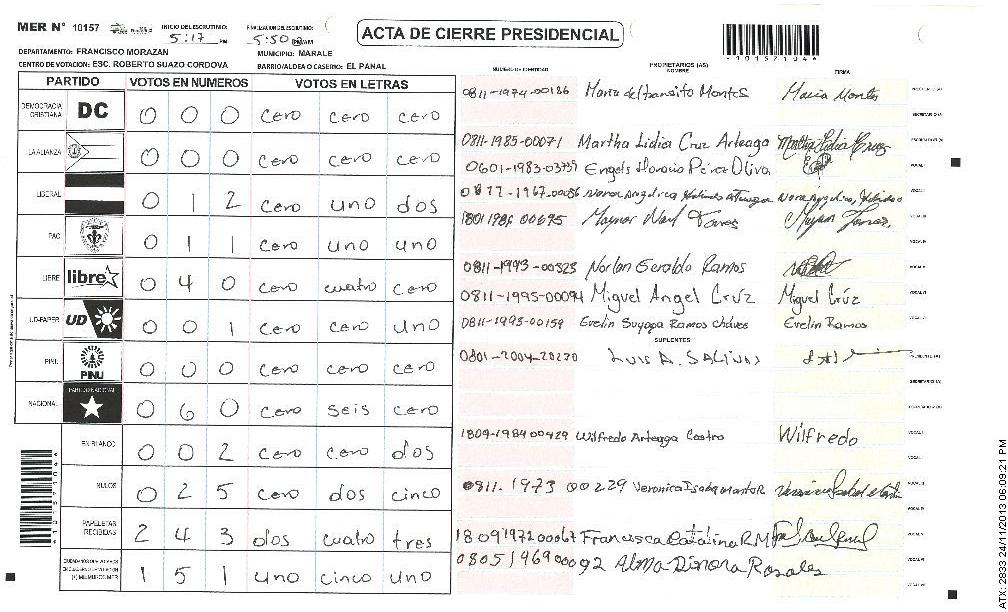 MER N° 10157
INICIO DEL ESCRUTINIO: 5:17 PM
FINALIZACION DEL ESCRUTINIO: 5:50
ACTA DE CIERRE PRESIDENCIAL
*10157104*
DEPARTAMENTO: FRANCISCO MORAZAN
MUNICIPIO: MARALE
CENTRO DE VOTACION: ESC. ROBERTO SUAZO CORDOVA
BARRIO/ALDEA O CASERIO: EL PANAL
PARTIDO VOTOS EN NUMEROS VOTOS EN LETRAS
DEMOCRACIA CRISTIANA DC 0 0 0 cero cero cero
LA ALIANZA 0 0 0 cero cero cero
LIBERAL 0 1 2 cero uno dos
PAC 0 1 1 cero uno uno
LIBRE libre 0 4 0 cero cuatro cero
UD-FAPER UD 0 0 1 cero cero uno
PINU PINU 0 0 0 cero cero cero
NACIONAL PARTIDO NACIONAL 0 6 0 cero seis cero
EN BLANCO 0 0 2 cero cero dos
NULOS 0 2 5 cero dos cinco
PAPELETAS RECIBIDAS 2 4 3 dos cuatro tres
1 5 1 uno cinco uno
NUMERO DE IDENTIDAD PROPIETARIOS (AS) NOMBRE FIRMA
0811-1974-00186 Maria del transito Montes Maria Montes
0811-1985-00071 Martha Lidia Cruz Arteaga Martha Lidia Cruz
0601-1983-03735 Engels Horacio Pérez Oliva
1801 1986 00695
0811-1993-00323 Norlan Geraldo Ramos
0811-1995-00094 Miguel Angel Crúz Miguel Crúz
0811-1993-00159 Evelin Suyapa Ramos Cháves Evelin Ramos
SUPLENTES
0801-2004-20220 Luis A. Salinas
1809-1984 00429 Wilfredo Arteaga Castro Wilfredo
0811-1973 00229 Veronica Isabel
1809 1972 00067 Francisca Catalina RM
0805 1969 00092 Alma Dinora Rosales
ATX: 2933 24/11/2013 06:09:21 PM